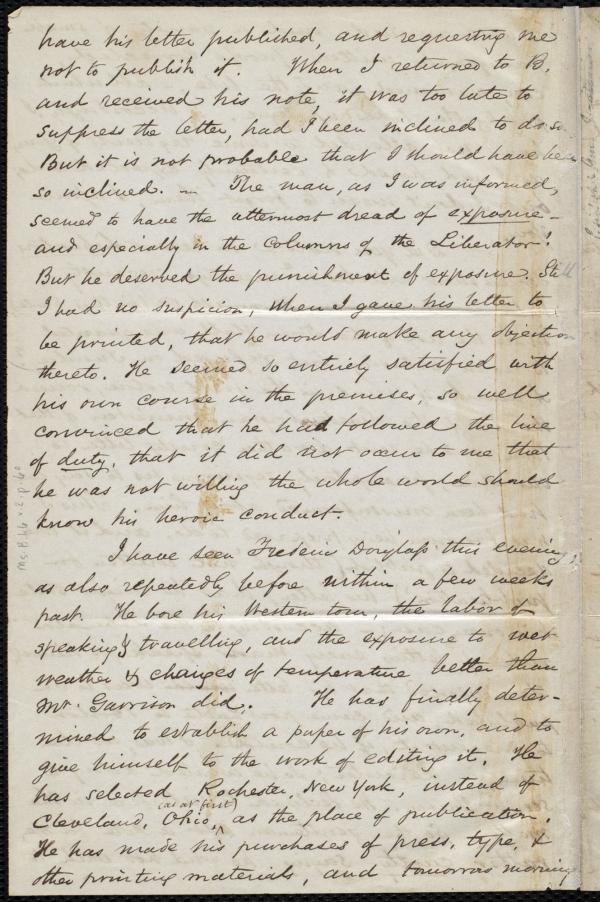 have his letter published, and requesting me
not to publish it. When I returned to B.
and received his note, it was too late to
suppress the letter, had I been inclined to do so.
But it is not probable that I should have been
so inclined. — The man, as I was informed,
seemed to have the uttermost dread of exposure —
and especially in the columns of the Liberator!
But he deserved the punishment of exposure. Still
I had no suspicion, when I gave his letter to
be printed, that he would make any objection
thereto. He seemed so entirely satisfied with
his own course in the premises, so well
convinced that he had followed the line
of duty, that it did not occur to me that
he was not willing the whole world should
know his heroic conduct.
I have seen Frederic Douglass this evening,
as also repeatedly before within a few weeks
past. He bore his Western tour, the labor of
speaking & travelling, and the exposure to wet
weather & changes of temperature better than
Mr. Garrison did. He has finally deter-
mined to establish a paper of his own, and to
give himself to the work of editing it. He
has selected Rochester, New York, instead of
(as at first)
Cleveland, Ohio, as the place of publication.
He has made his purchases of press, type, &
other printing materials, and tomorrow morning
Ms.B.1.6 v.2, p.60